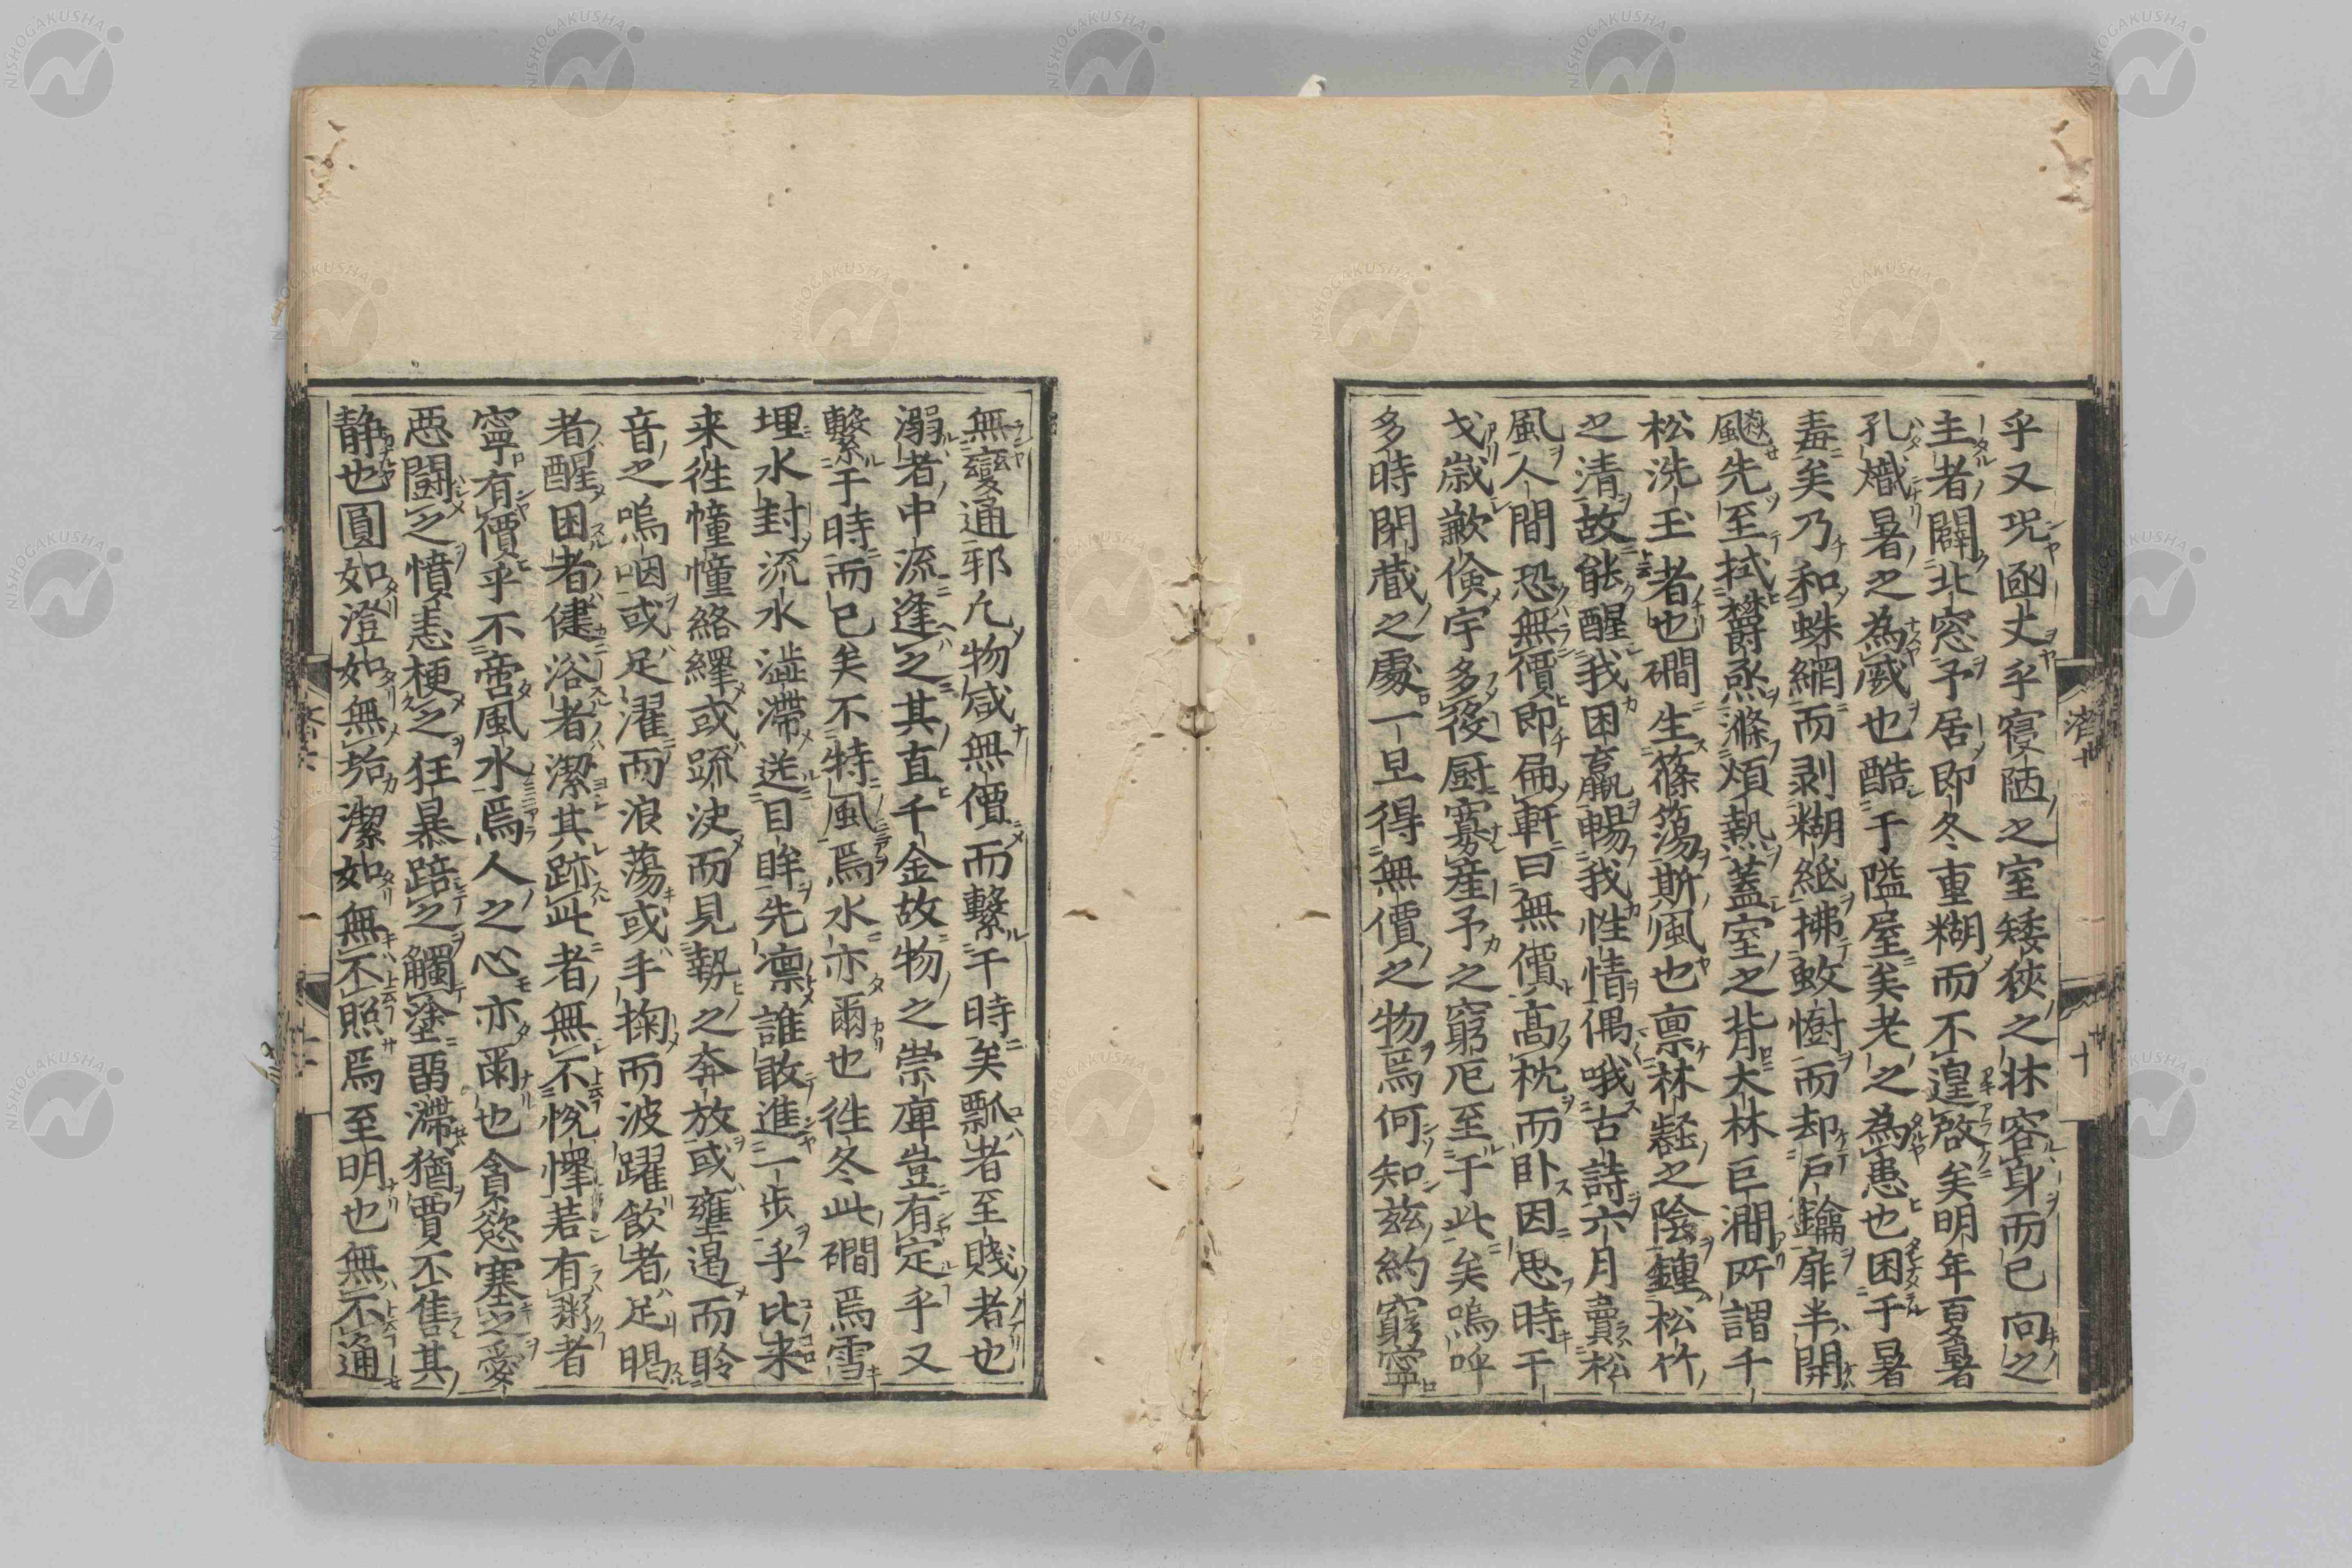 乎又況凾丈乎寝陋之室矮狹之牀容身而已向之
主者闢北窓予居即冬重糊而不遑啓矣明年夏暑
孔熾暑之為威也酷于隘屋矣老之為患也困于暑
毒矣乃和蛛網而剥糊紙拂蚊㡡而却戸鑰扉半開
颷先至拭欝蒸滌煩熱蓋室之背大林巨澗所謂千
松洗玉者也磵生篠簜斯風也稟林壑之陰鍾松竹
之清故能醒我困羸暢我性情偶哦古詩六月賣松
風人間恐無價即扁軒曰無價高枕而卧因思時干
戈歳歉儉宇多後厨寡産予之窮厄至于此矣嗚呼
多時閉藏之處一旦得無價之物焉何知茲約窮寧
無變通邪凢物咸無價而繫干時矣瓢者至賤者也
溺者中流逢之其直千金故物之崇庳豈有定乎又
繫于時而已矣不特風焉水亦爾也徃冬此磵焉雪
埋水封流水澁滯送目眸先凛誰敢進一歩乎比来
来徃憧憧絡繹或疏决而見勢之奔放或壅遏而聆
音之嗚咽或足濯而浪蕩或手掬而波躍飲者足暍
者醒困者健浴者潔其跡此者無不悦懌若有粥者
寧有價乎不啻風水焉人之心亦爾也貪慾塞之愛
惡鬪之憤恚梗之狂暴踣之觸塗畱滯猶賈不售其
静也圓如澄如無垢潔如無不照焉至明也無不通